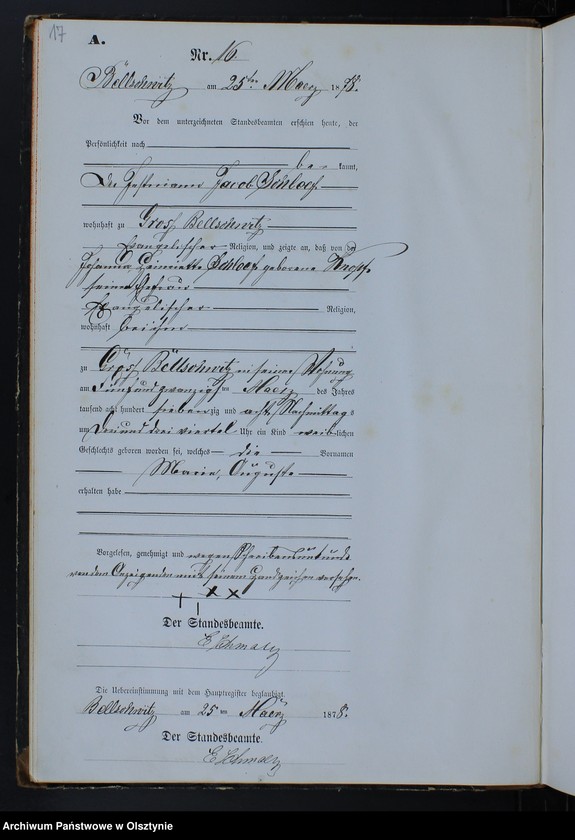 17
A.
Nr. 16
Bellschwitz am 25ten Maerz 1878.
Vor dem unterzeichneten Standesbeamten erschien heute, der
Persönlichkeit nach
be kannt,
Der Jacob Schloef
wohnhaft zu Gross Bellschwitz
evangelischer Religion, und zeigte an, daß von der
Johanna Schloef geborene
seiner Ehefrau
evangelischer Religion,
wohnhaft bei ihm
zu Gross Bellschwitz in seiner Wohnung
am fünf und zwanzigsten Maerz des Jahres
tausend acht hundert siebenzig und acht Nachmittags
um drei viertel Uhr ein Kind weiblichen
Geschlechts geboren worden sei, welches die Vornamen
Marie, Auguste
erhalten habe
Vorgelesen, genehmigt und wegen Schreibensunkunde
von dem Anzeigenden mit seinem Handzeichen versehen.
+ | x x
Der Standesbeamte.
Die Uebereinstimmung mit dem Hauptregister beglaubigt.
Bellschwitz am 25 ten Maerz 1878.
Der Standesbeamte.
Archiwum Państwowe w Olsztynie